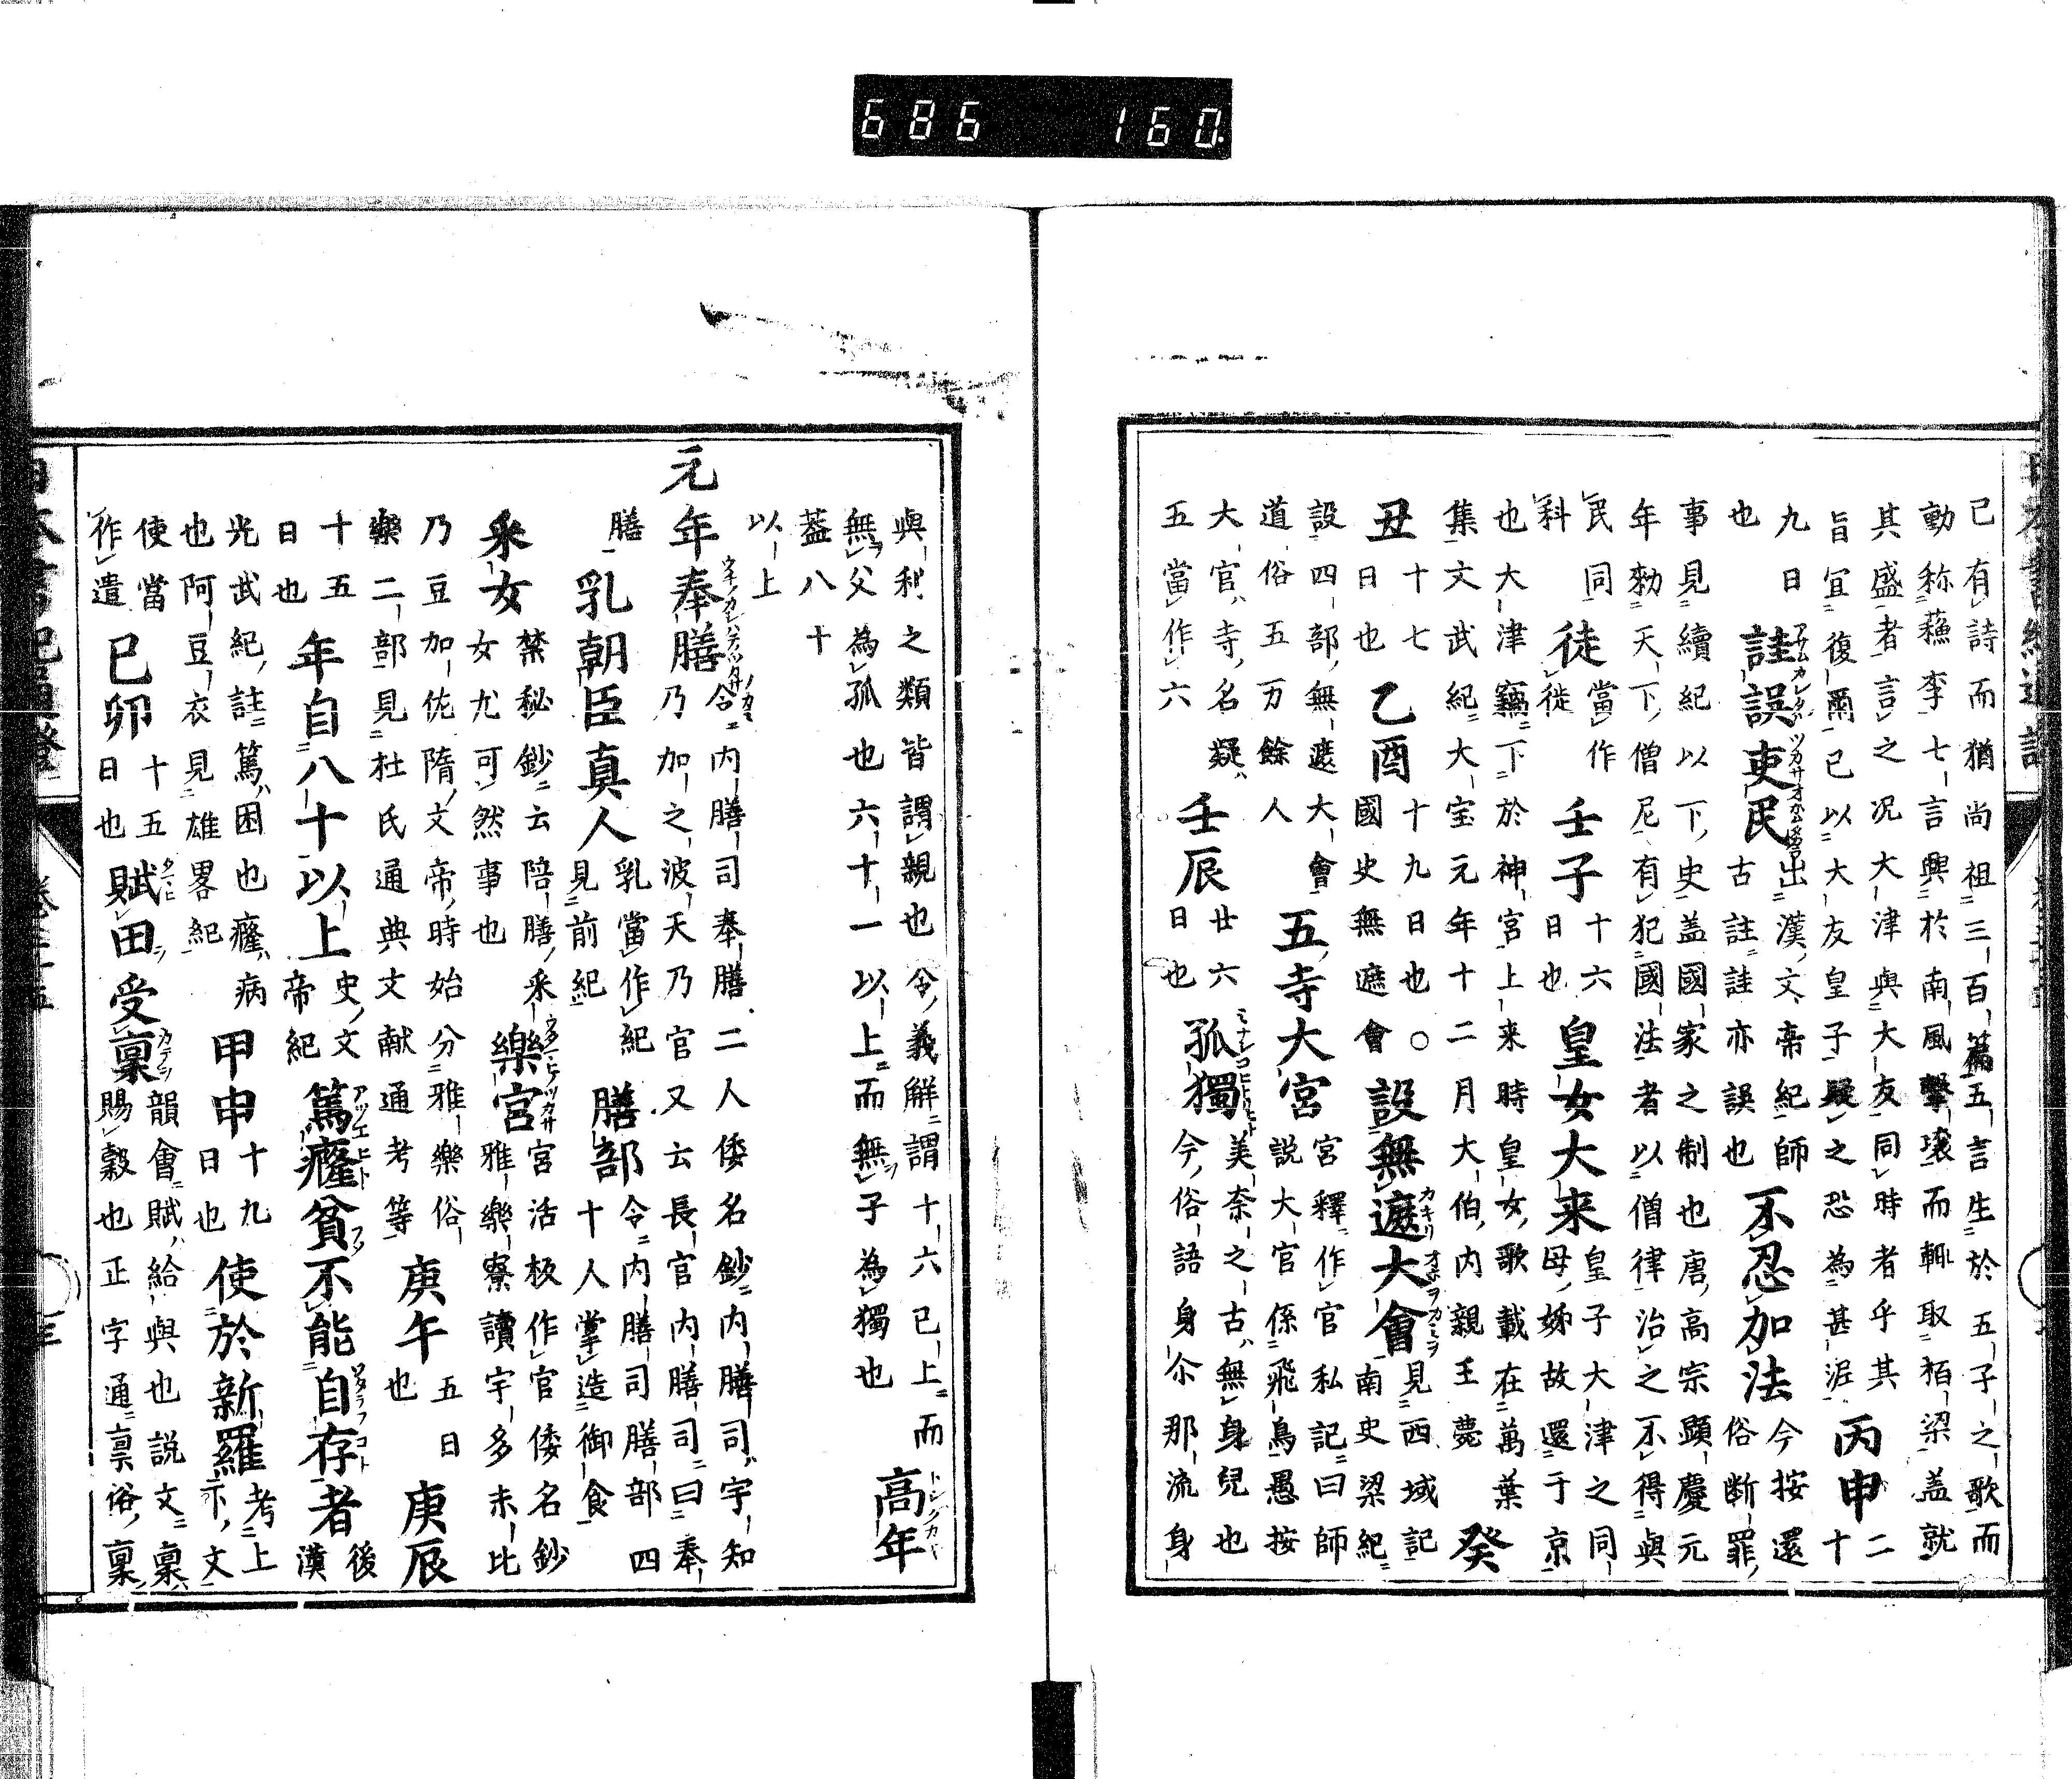 686 160.
已有詩而猶尚祖三百篇五言生於五子之歌而
動称蘓李七言興於南風擊壌而輙取栢梁盖就
其盛者言之况大津與大友同時者乎其
旨宜復爾已以大友皇子疑之恐為甚泥 丙申 十二
九日 詿誤吏民 アサムカレタル ツカサオホムタカラ 出漢文帝紀師古註詿亦誤也 不忍加法 今按還俗断罪
也
事見續紀以下史盖國家之制也唐高宗顕慶元
年勑天下僧尼有犯國法者以僧律治之不得與
民同 當作 徒 徙 壬子 十六日也 皇女大来 皇子大津之同母姊故還于京
科
也大津竊下於神宮上来時皇女歌載在萬葉
集文武紀大宝元年十二月大伯内親王薨 癸
丑 十七日也 乙酉 十九日也〇國史無遮會 設無遮大會 カキリ オホヲカミヲ 見西域記南史梁紀
設四部無遮大會 五寺大宮 宮釋作官私記曰師説大官係飛鳥愚按
道俗五万餘人
大官ハ寺名疑ハ 壬辰 廿六日也 孤獨 ミナシコヒトリヒト 美奈之古ハ無身兒也今俗語身尓那流身
五當作六
與利之類皆謂親也令義解謂十六已上而 高年 トシタカキ
無父為孤也六十一以上而無子為獨也
葢八十
以上
元年奉膳 ウチノカシハテツカサノカミ 令内膳司奉膳二人倭名鈔内膳司宇知乃加之波天乃官又云長官内膳司曰奉
膳 乳朝臣真人 乳當作紀見前紀 膳部 令内膳司膳部四十人掌造御食
采女 禁秘鈔云陪膳采女尤可然事也 樂官 ウタマヒノツカサ 宮活板作官倭名鈔雅樂寮讀宇多末比
乃豆加佐隋文帝時始分雅樂俗
樂二部見杜氏通典文献通考等 庚午 五日也 庚辰
十五日也 年自八十以上 史文帝紀 篤癃貧不能自存者 アツエヒト ワタラフコト 後漢
光武紀註篤ハ困也癃ハ病
也阿豆衣見雄畧紀 甲申 十九日也 使於新羅 考上亦文
使當作遣 己卯 十五日也 賦田受稟 タマヒ カテヲ 韻會賦ハ給與也説文稟ハ賜穀也正字通稟俗稟